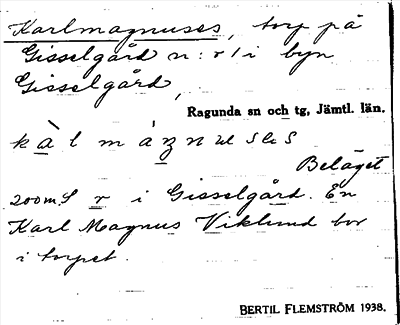 Karlmagnuses, torp på
Gisselgård n:r 1 i byn
Gisselgård,
Ragunda sn och tg, Jämtl. län.
Beläget
200 m S r i Gisselgård. En
Karl Magnus Viklund bor
i torpet.
BERTIL FLEMSTRÖM 1938.